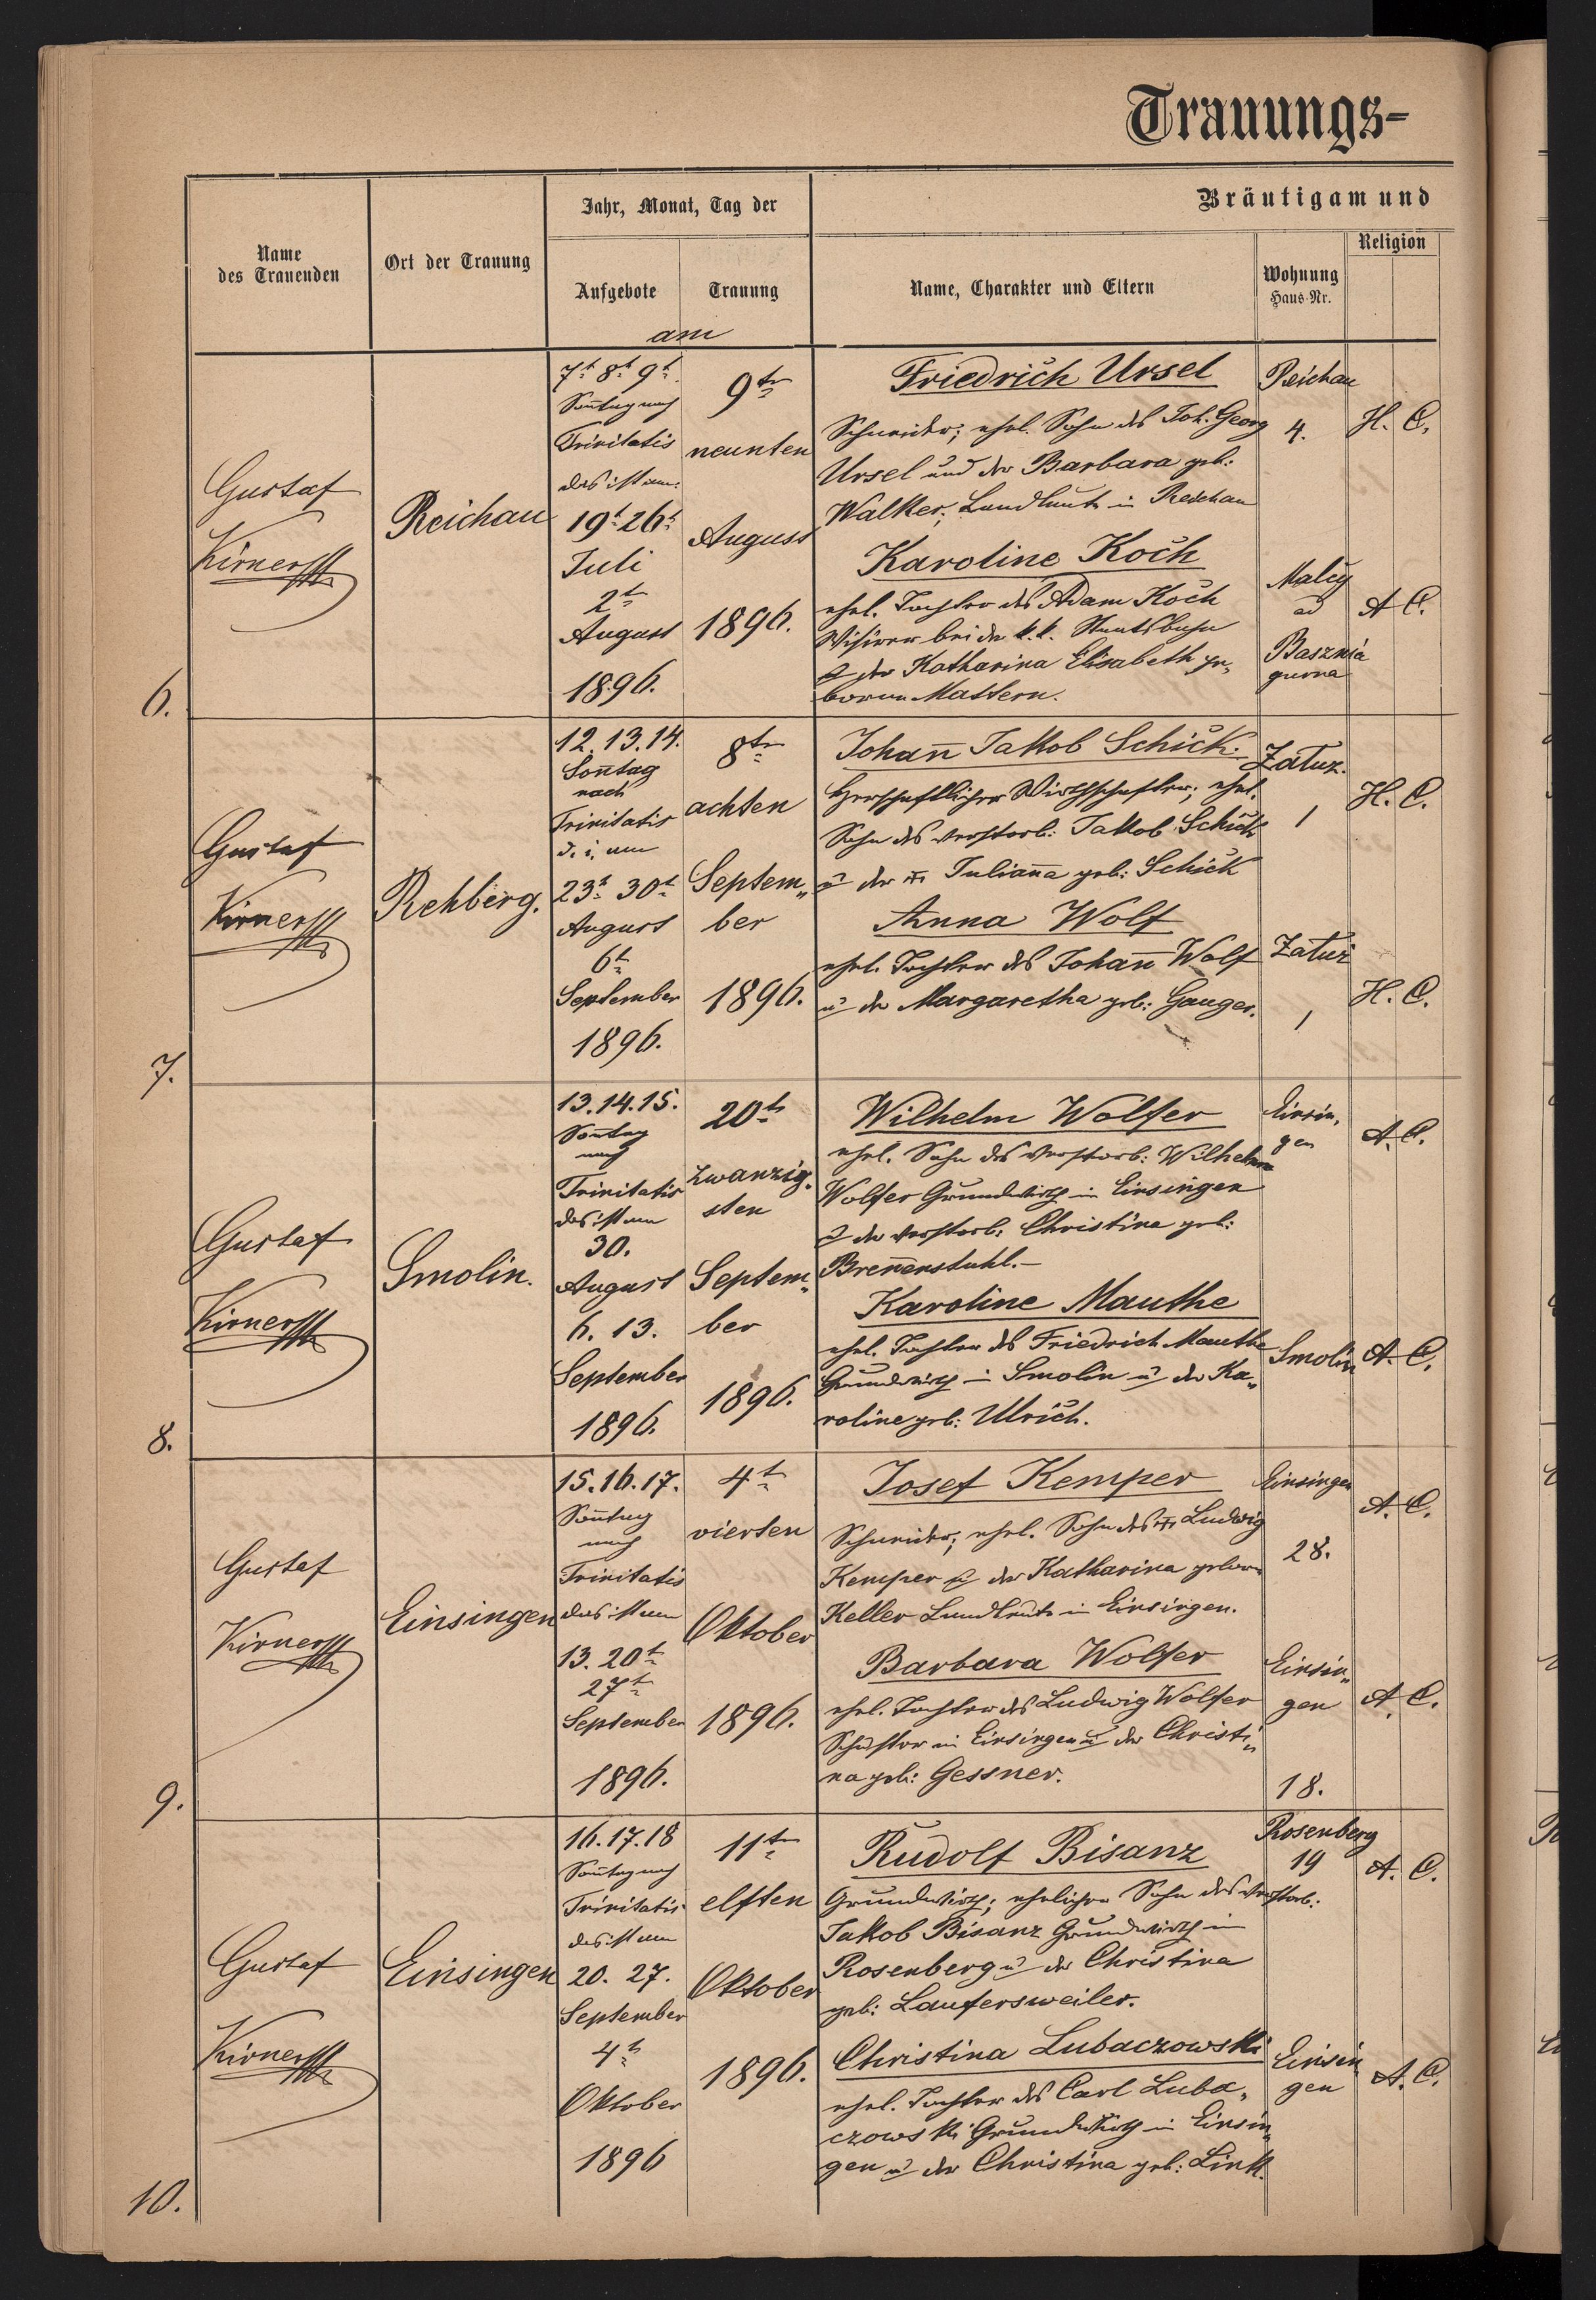 Trauungs-
Name des Trauenden
Ort der Trauung
Jahr, Monat, Tag der
Aufgebote
Trauung
am
Bräutigam und
Name, Charakter und Eltern
Wohnung
Haus-Nr.
Religion
6.
Gustaf
Kirner
Reichau
7t 8t 9t
Sonntag nach
Trinitatis
das ist am:
19t 26t
Juli
2t
August
1896.
9ten
neunten
August
1896.
Friedrich Ursel
Schneider; ehel. Sohn des Joh. Georg
Ursel und der Barbara geb:
Walker; Landleute in Reichau
Reichau
4.
H. C.
Karoline Koch
ehel. Tochter des Adam Koch
Visirer bei der k.k. Staatsbahn
u der Katharina Elisabeth ge„
borene Mattern.
Malcy
ad
Basznia
gurna
A C.
7.
Gustaf
Kirner
Rehberg.
12. 13. 14.
Soñtag
nach
Trinitatis
d. i. am
23t 30t
August
6t
September
1896.
8ten
achten
Septem„
ber
1896.
Johañ Jakob Schick.
Herschaftlicher Wirthschafter; ehel.
Sohn des verstorb: Jakob Schick
u der Juliañа geb: Schick
Zatuz.
1
H. C.
Anna Wolf
ehel. Tochter des Johañ Wolf
u der Margaretha geb: Gauger.
Zatuz
1
H. C.
8.
Gustaf
Kirner
Smolin.
13. 14. 15.
Sontag
nach
Trinitatis
das ist am
30.
August
6. 13.
September
1896.
20t
zwanzig„
sten
Septem„
ber
1896.
Wilhelm Wolfer
ehel. Sohn des verstorb: Wilhelm
Wolfer Grundwirth in Einsingen
u der verstorb: Christina geb:
Breñenstuhl.–
Einsin„
gen
A. C.
Karoline Mauthe
ehel. Tochter des Friedrich Mauthe
Grundwirth in Smolin u der Ka„
roline geb: Ulrich.
Smolin
A. C.
9.
Gustaf
Kirner
Einsingen
15. 16. 17.
Soñtag
nach
Trinitatis
das ist am
13. 20t
27t
September
1896.
4t
vierten
Oktober
1896.
Josef Kemper
Schneider; ehel. Sohn des Ludwig
Kemper u der Katharina gebor.
Keller Landleute in Einsingen.
Einsingen
28.
A. C.
Barbara Wolfer
ehel. Tochter des Ludwig Wolfer
Schuster in Einsingen u der Christi„
na geb: Gessner.
Einsin„
gen
18.
A. C.
10.
Gustaf
Kirner
Einsingen
16. 17. 18
Soñtag nach
Trinitatis
das ist am
20. 27.
September
4t
Oktober
1896
11ten
elften
Oktober
1896.
Rudolf Bisanz
Grundwirth; ehelicher Sohn des verstorb.
Jakob Bisanz Grundwirth in
Rosenberg u der Christina
geb: Laufersweiler.
Rosenberg
19
A. C.
Christina Lubaczowski
ehel. Tochter des Carl Luba„
czowski Grundwirth in Einsin„
gen u der Christina geb: Link.
Einsin„
gen
A. C.